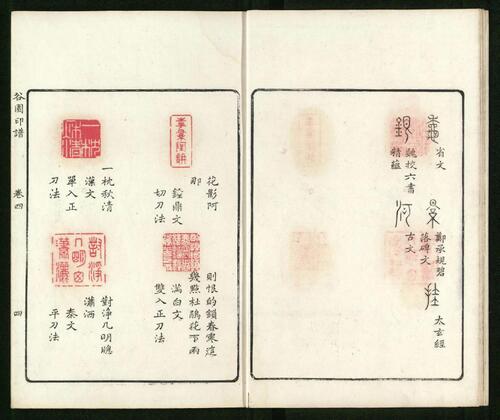 省文
鄭承規碧
落碑文
太玄經
銀
魏校六書
精蘊
河
古文
花影阿
那
鐘鼎文
切刀法
則恨的鎖春寒這
幾點杜鵑花下雨
滿白文
雙入正刀法
一枕秋清
漢文
單入正
刀法
對淨几明牕
瀟洒
秦文
平刀法
谷園印譜
卷四
四